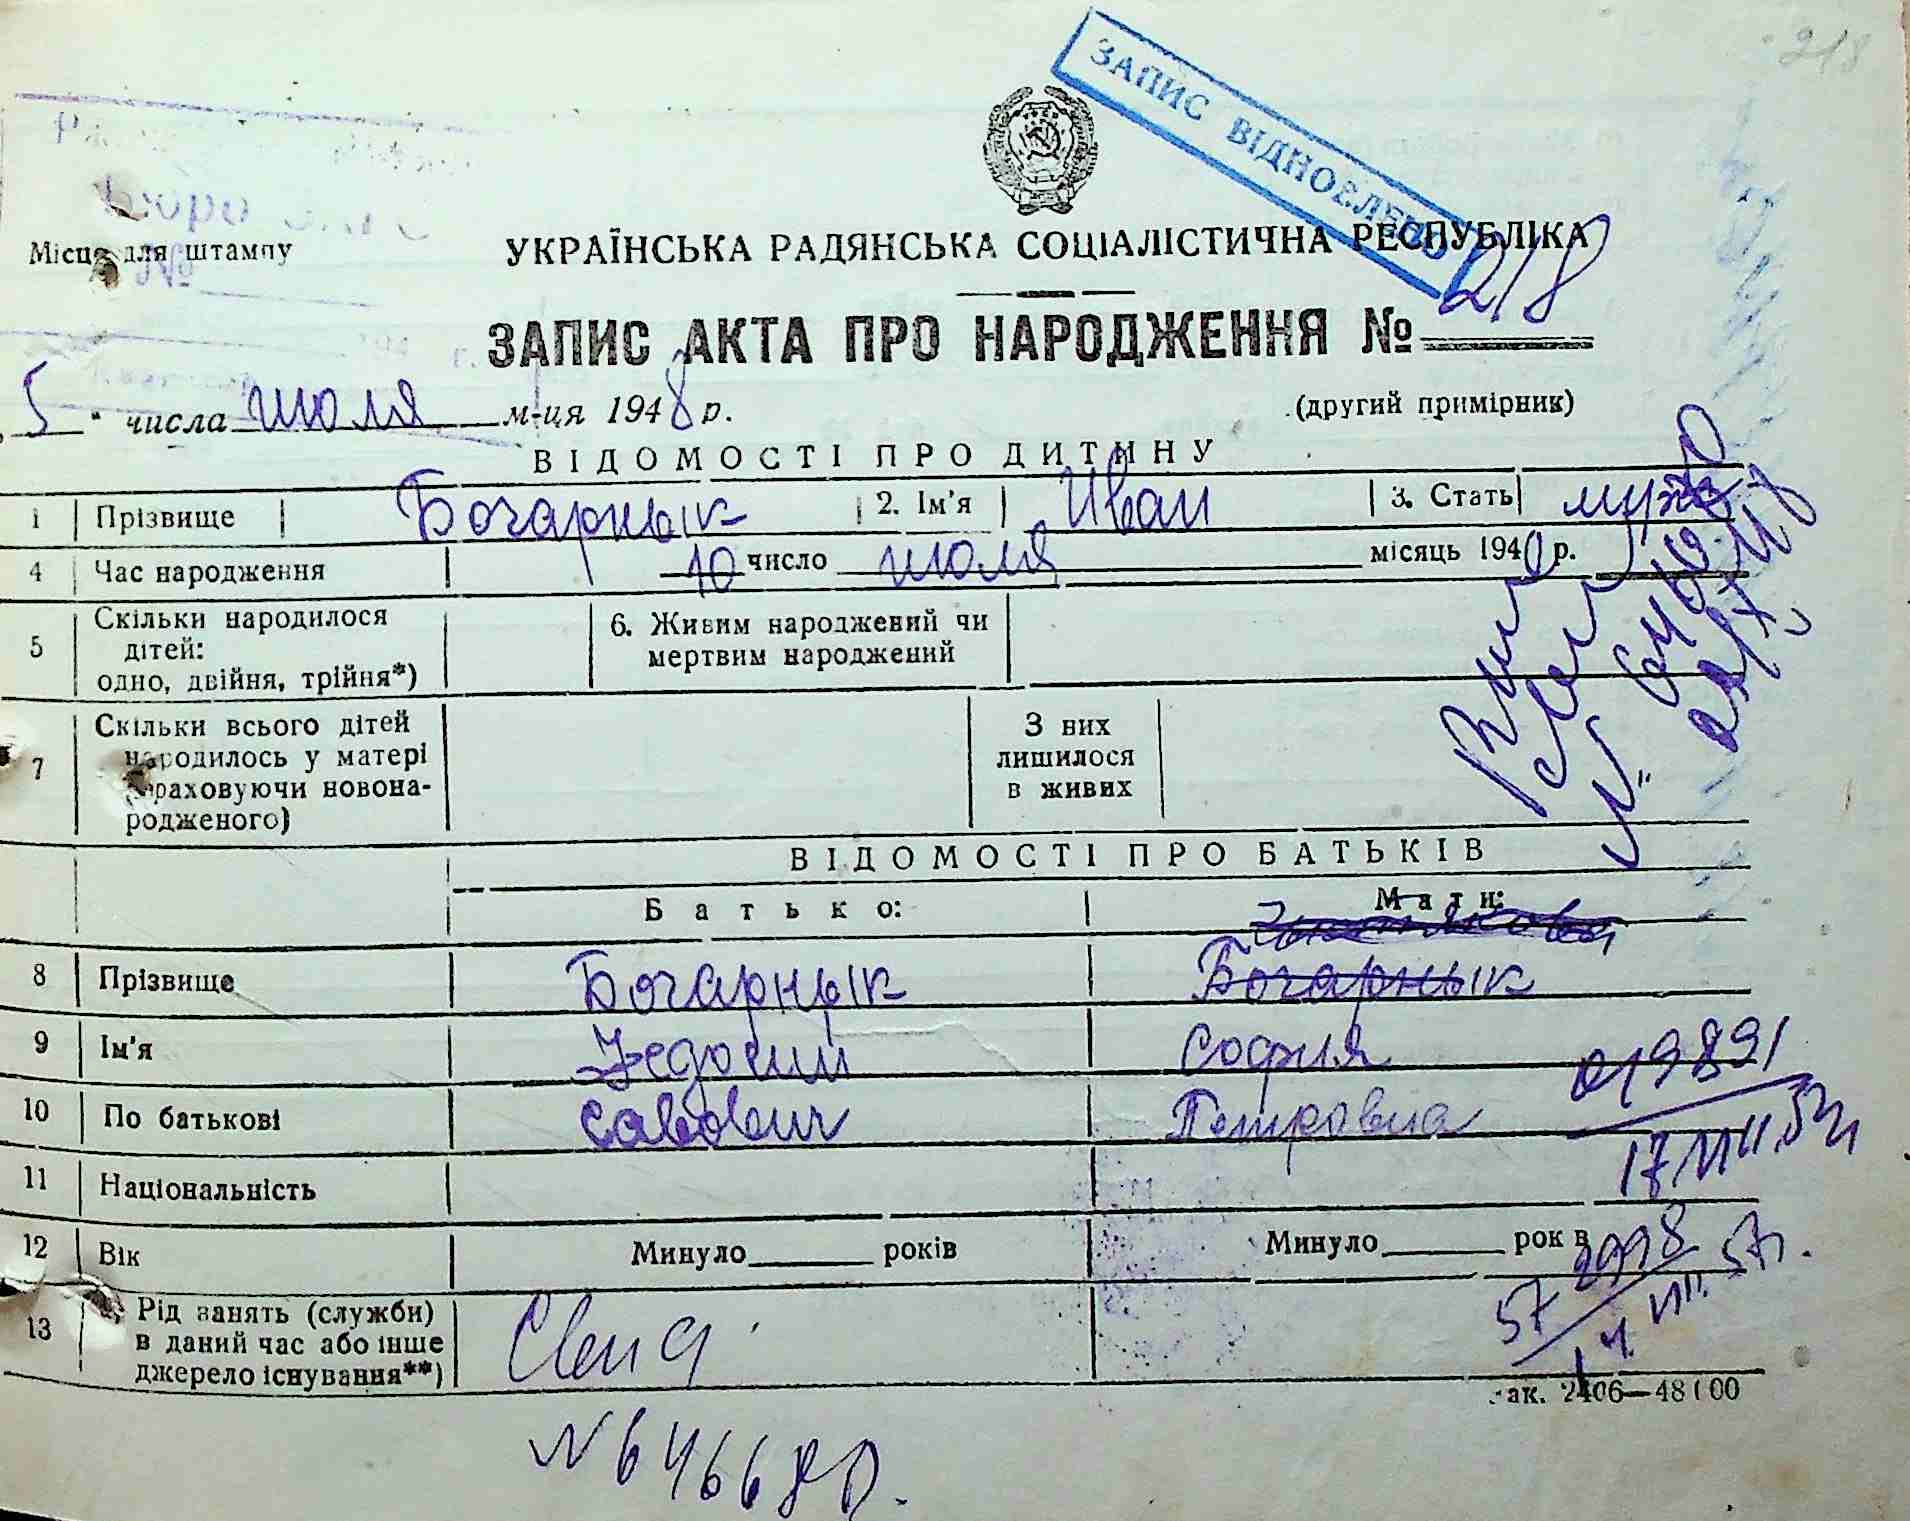 218
ЗАПИС ВІДНОВЛЕНО
Бюро
№
Місце для штампу
УКРАЇНСЬКА РАДЯНСЬКА СОЦІАЛІСТИЧНА РЕСПУБЛІКА
ЗАПИС АКТА ПРО НАРОДЖЕННЯ № 218
„5" числа июля м-ця 1948 р.
(другий примірник)
ВІДОМОСТІ ПРО ДИТИНУ
1 Прізвище Бочарнык 2. Ім'я Иван 3. Стать муж
4 Час народження 10 число июля місяць 1940 р.
5 Скільки народилося дітей: одно, двійня, трійня*) 6. Живим народжений чи мертвим народжений
7 Скільки всього дітей народилось у матері (враховуючи новонародженого) З них лишилося в живих
ВІДОМОСТІ ПРО БАТЬКІВ
Батько: Мати:
8 Прізвище Бочарнык Бочарнык
9 Ім'я Федосий София
10 По батькові Савович Петровна
019891
11 Національність
12 Вік Минуло років Минуло років
13 Рід занять (служби) в даний час або інше джерело існування**)
Зак. 2406—48100